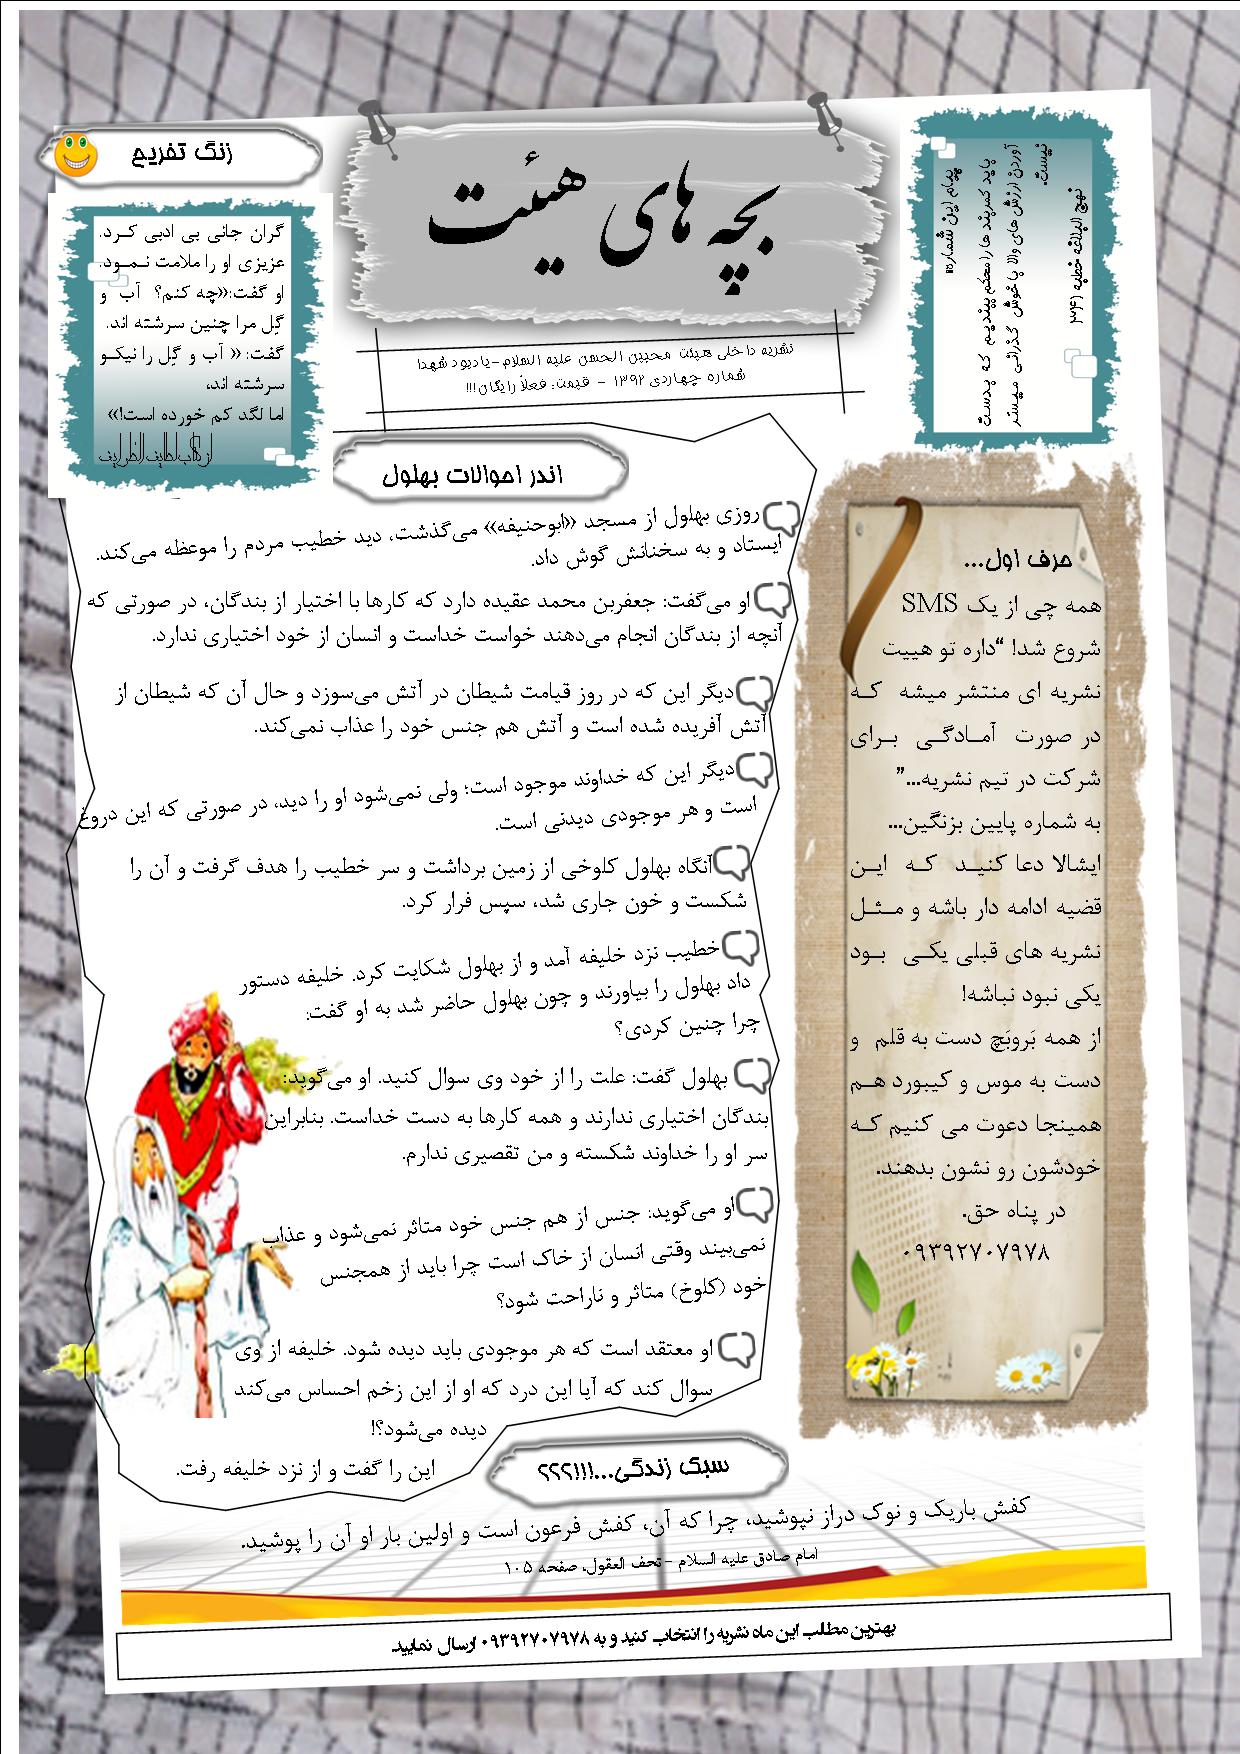 بچه های هیئت
نشریه داخلی هیئت محبین الحسن علیه السلام-یادبود شهدا
شماره چهاردی ۱۳۹۲ - قیمت: فعلاً رایگان!!!
پیام این شماره:
باید کمربند ها را محکم ببندیم که بدست
آوردن ارزش های والا با خوش گذرانی میسر
نیست.
نهج البلاغه خطبه
زنگ تفریح
گران جانی بی ادبی کرد.
عزیزی او را ملامت نمود.
او گفت:«چه کنم؟ آب و
گِل مرا چنین سرشته اند.
گفت: « آب و گِل را نیکو
سرشته اند،
اما لگد کم خورده است!»
از کتاب لطایف الظرایف
حرف اول...
همه چی از یک SMS
شروع شد! “داره تو هییت
نشریه ای منتشر میشه که
در صورت آمادگی برای
شرکت در تیم نشریه...”
به شماره پایین بزنگین...
ایشالا دعا کنید که این
قضیه ادامه دار باشه و مثل
نشریه های قبلی یکی بود
یکی نبود نباشه!
از همه بَروبَچ دست به قلم و
دست به موس و کیبورد هم
همینجا دعوت می کنیم که
خودشون رو نشون بدهند.
در پناه حق.
۰۹۳۹۲۷۰۷۹۷۸
اندر احوالات بهلول
روزی بهلول از مسجد «ابوحنیفه» می‌گذشت، دید خطیب مردم را موعظه می‌کند.
ایستاد و به سخنانش گوش داد.
او می‌گفت: جعفربن محمد عقیده دارد که کارها با اختیار از بندگان، در صورتی که
آنچه از بندگان انجام می‌دهند خواست خداست و انسان از خود اختیاری ندارد.
دیگر این که در روز قیامت شیطان در آتش می‌سوزد و حال آن که شیطان از
آتش آفریده شده است و آتش هم جنس خود را عذاب نمی‌کند.
دیگر این که خداوند موجود است؛ ولی نمی‌شود او را دید، در صورتی که این دروغ
است و هر موجودی دیدنی است.
آنگاه بهلول کلوخی از زمین برداشت و سر خطیب را هدف گرفت و آن را
شکست و خون جاری شد، سپس فرار کرد.
خطیب نزد خلیفه آمد و از بهلول شکایت کرد. خلیفه دستور
داد بهلول را بیاورند و چون بهلول حاضر شد به او گفت:
چرا چنین کردی؟
بهلول گفت: علت را از خود وی سوال کنید. او می‌گوید:
بندگان اختیاری ندارند و همه کارها به دست خداست. بنابراین
سر او را خداوند شکسته و من تقصیری ندارم.
او می‌گوید: جنس از هم جنس خود متاثر نمی‌شود و عذاب
نمی‌بیند وقتی انسان از خاک است چرا باید از همجنس
خود (کلوخ) متاثر و ناراحت شود؟
او معتقد است که هر موجودی باید دیده شود. خلیفه از وی
سوال کند که آیا این درد که او از این زخم احساس می‌کند
دیده می‌شود؟!
این را گفت و از نزد خلیفه رفت.
سبک زندگی...!!!؟؟؟
کفش باریک و نوک دراز نپوشید، چرا که آن، کفش فرعون است و اولین بار او آن را پوشید.
امام صادق علیه السلام -تحف العقول، صفحه ۱۰۵
بهترین مطلب این ماه نشریه را انتخاب کنید و به ۰۹۳۹۲۷۰۷۹۷۸ ارسال نمایید.